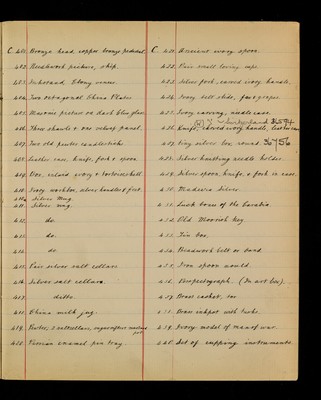 C. 401. Bronze head, copper bronze pedestal.
402. Needlework picture, ship.
403. Inkstand, Ebony
404. Two octagonal China Plates
405. Masonic picture on dark blue glass.
406. Three shawls & one
407. Two old pewter candlesticks
408. Leather case, knife, fork & spoon.
409. Box, inlaid ivory & tortoiseshell.
410. Ivory workbox, silver handles & feet.
Silver Mug.
411. Silver mug.
412. do.
413. do.
414. do.
415. Pair silver salt cellars
416. Silver salt cellars.
417. ditto.
418. China milk jug.
419. Pewter, 2 saltcellars, sugar sifter, mustard pot
420. Persian enamel pen tray.
C. 421. Ancient ivory spoon.
422. Pair small loving cups.
423. Silver fork, carved ivory handle.
424. Ivory belt slide, four grapes.
425. Ivory carving, needle case.
426. Knife, carved ivory handle,
427. Tiny silver box, round
428. Silver knitting needle holder.
429. Silver spoon, knife & fork in case.
430. Madeira Silver.
431. Lusk
432. Old Moorish key
433. Tin box.
434. Beadwork belt or band.
435. Iron spoon mould.
436. Perspectograph. (In art box).
437. Brass casket,
438. Brass inkpot with tube.
439. Ivory model of man of war.
440. Set of cupping instruments.